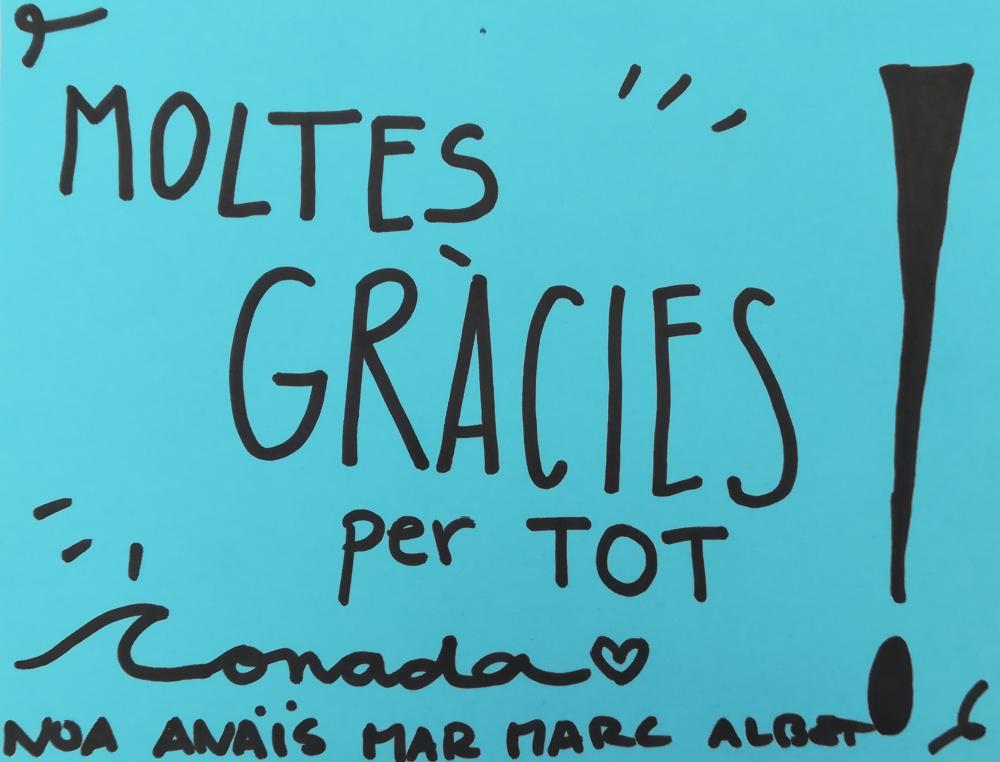 MOLTES
GRÀCIES !
per TOT
onada ♡
NOA ANAÏS MAR MARC